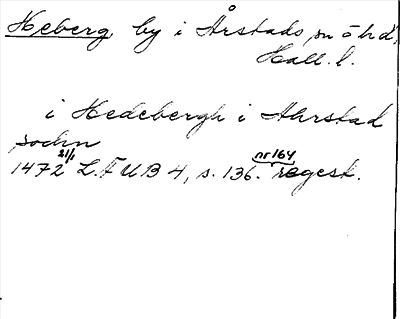 Heberg, by i Årstads sn o hd,
Hall. l.
i Hedebergh i Ahrstad
sochn
1472 21/1 L.F U B 4, s. 136. nr 164 regest.